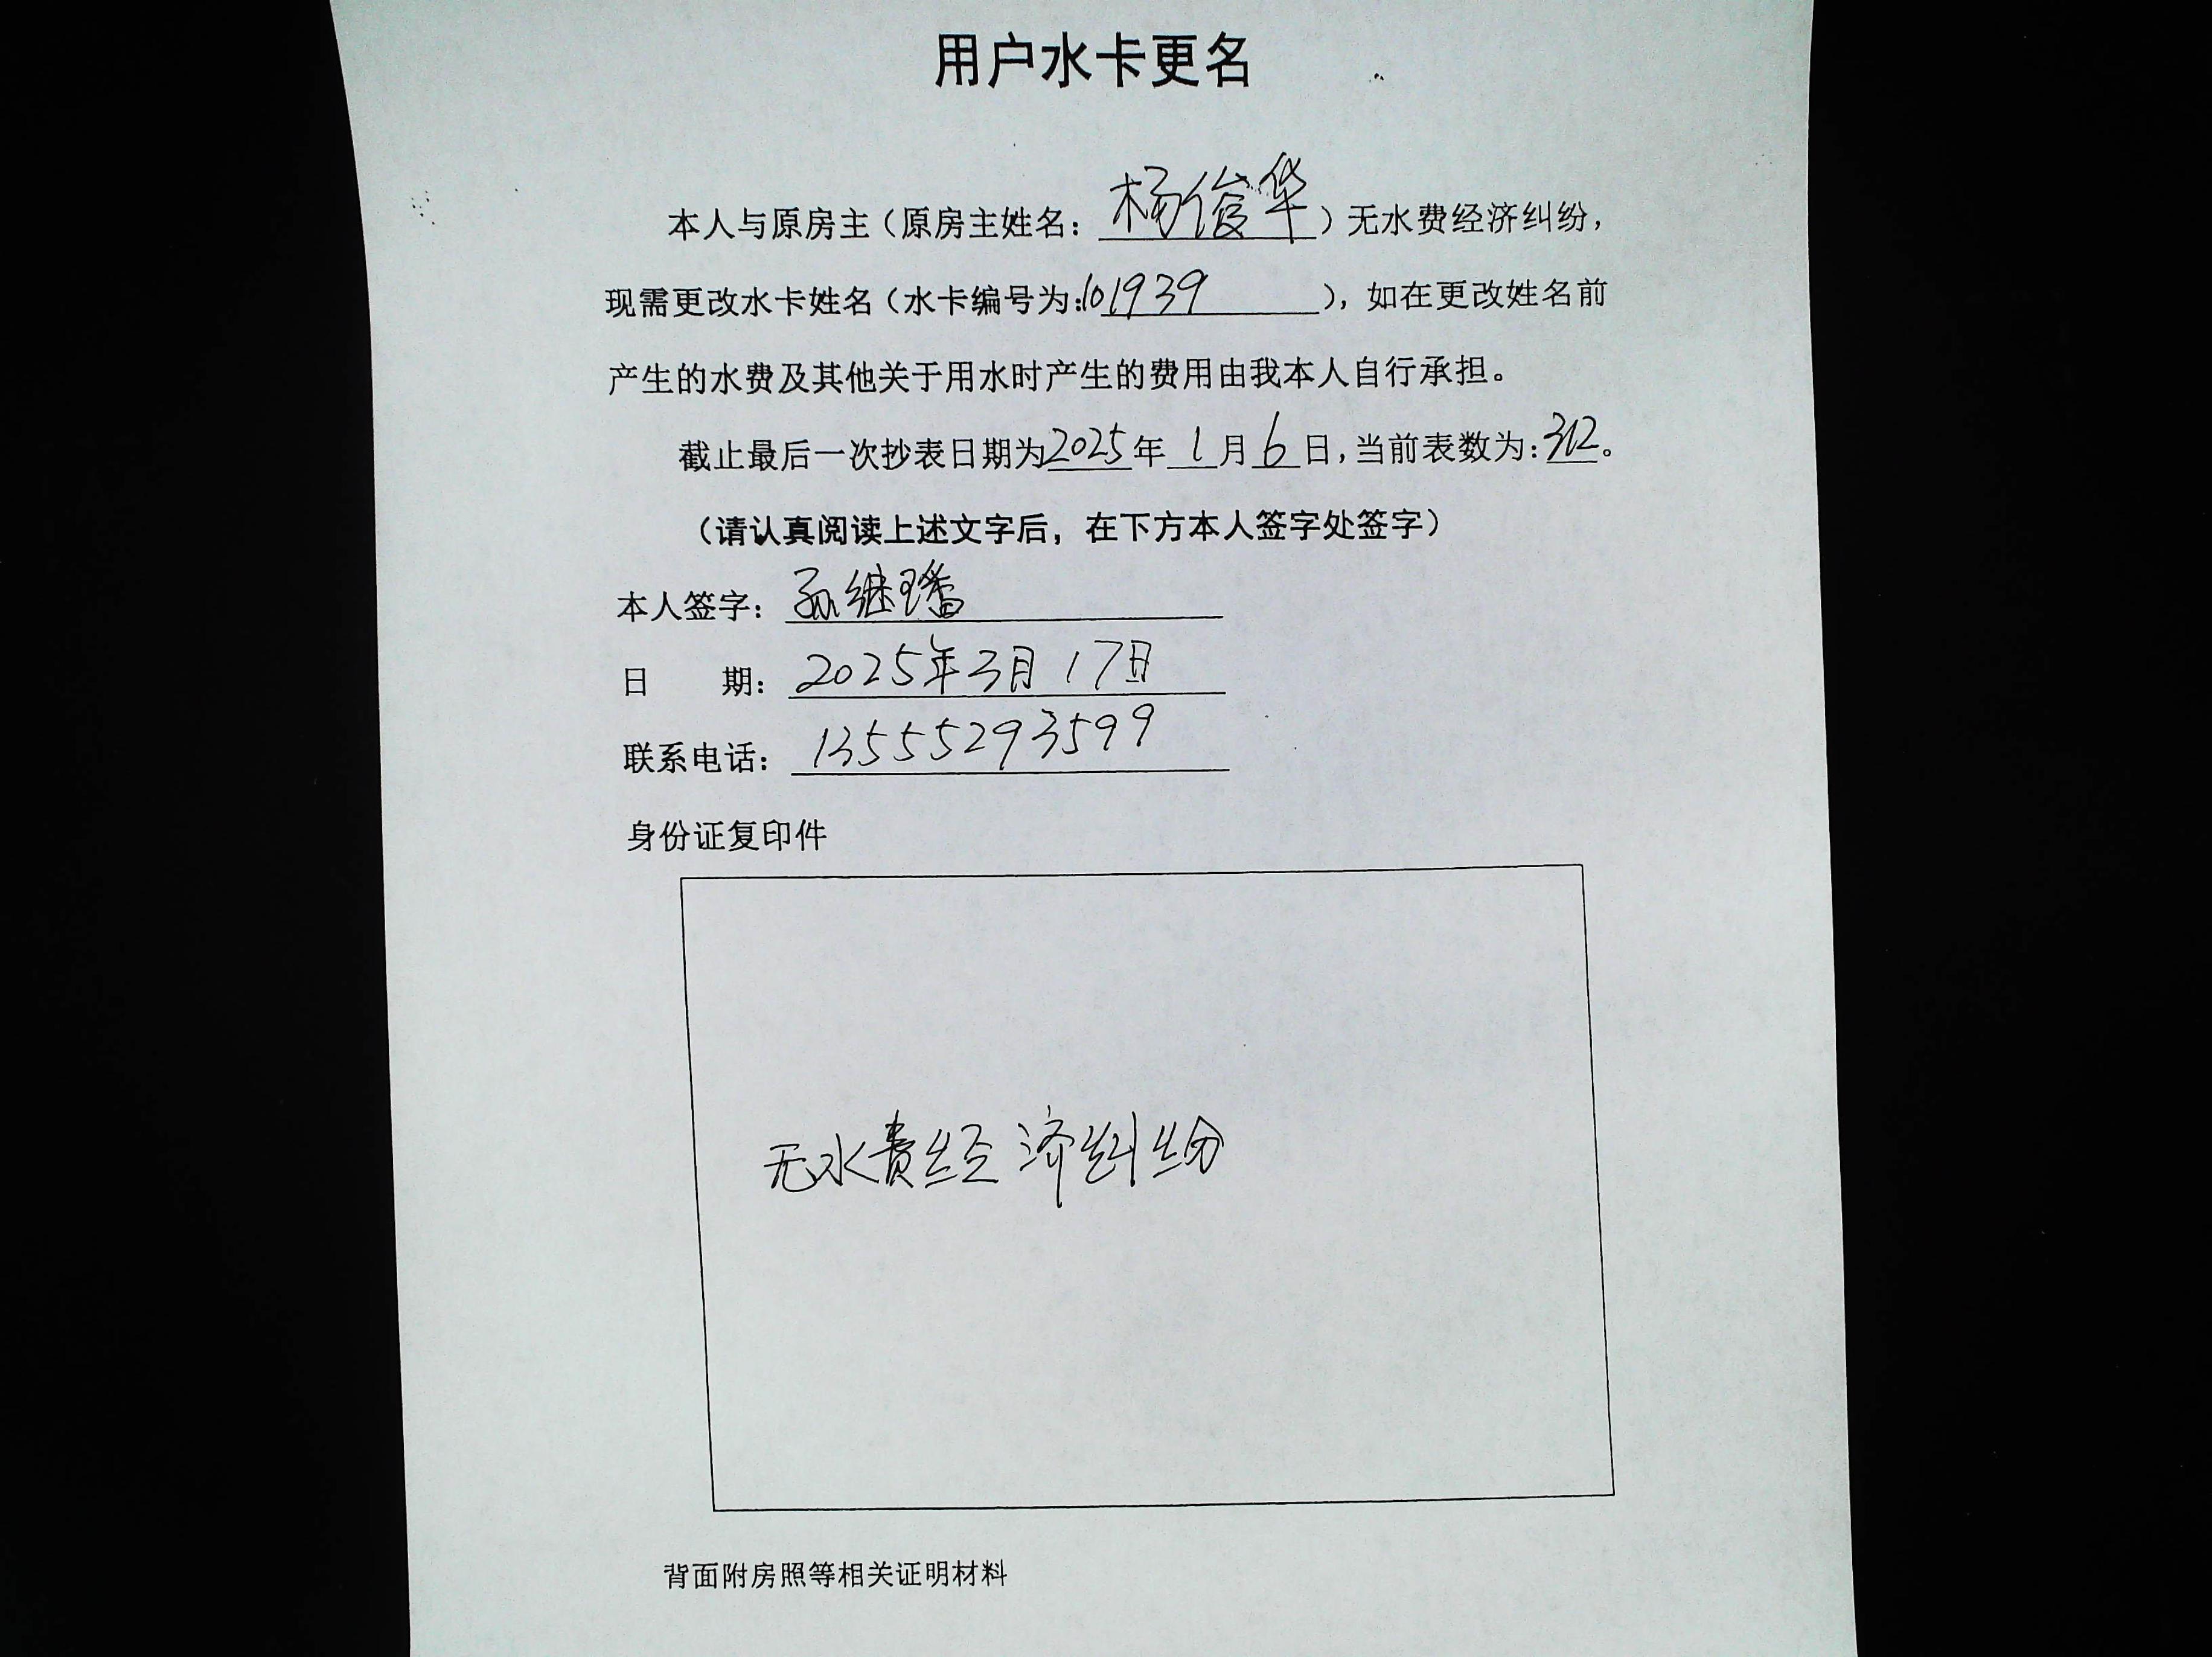 用户水卡更名
本人与原房主（原房主姓名：杨俊华）无水费经济纠纷，
现需更改水卡姓名（水卡编号为：101939），如在更改姓名前
产生的水费及其他关于用水时产生的费用由我本人自行承担。
截止最后一次抄表日期为2025年1月6日，当前表数为：312。
（请认真阅读上述文字后，在下方本人签字处签字）
本人签字：孙继璠
日 期：2025年3月17日
联系电话：13555293599
身份证复印件
无水费经济纠纷
背面附房照等相关证明材料